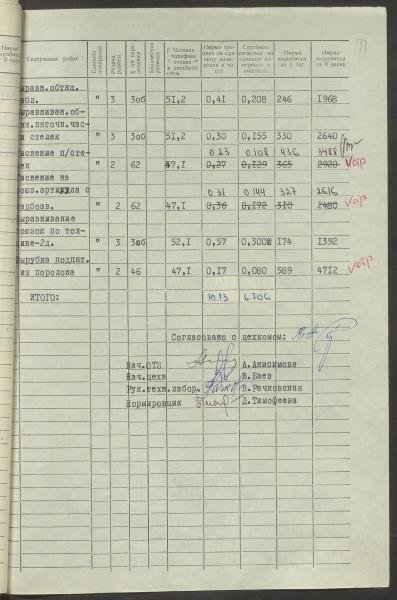 Содержание работ | Единица измерения | Разряд работы | № по справочнику | Количество рабочих | Часовая тарифная ставка в копейках | Норма времени на единицу измерения в часе | Сдельная расценка на единицу измерения в копейках | Норма выработки за 1 час | Норма выработки за 8 часов
" 3 3об 51,2 0,41 0,208 246 1968
ыравниван.об-
тян.пяточн.час-
ти стелек " 3 3об 51,2 0,30 0,155 330 2640
0.23 0.108 436 3488
иснение п/сте-
лек " 2 62 47,1 0,27 0,129 365 2920
иснение на
0.31 0.144 327 2616
" 2 62 47,1 0,36 0,172 310 2480
ыравнивание
по тол-
щине-2д. " 3 3об 52,1 0,57 0,300 174 1392
Вырубка подпят.
из поролона " 2 46 47,1 0,17 0,080 589 4712
ИТОГО: 10.13 6.706
Согласовано с цехкомом:
Нач.ОТЗ А.Анисимова
Нач.цеха В.Баев
Рук.техн.лабор. В.Рачковская
Нормировщик Д.Тимофеева